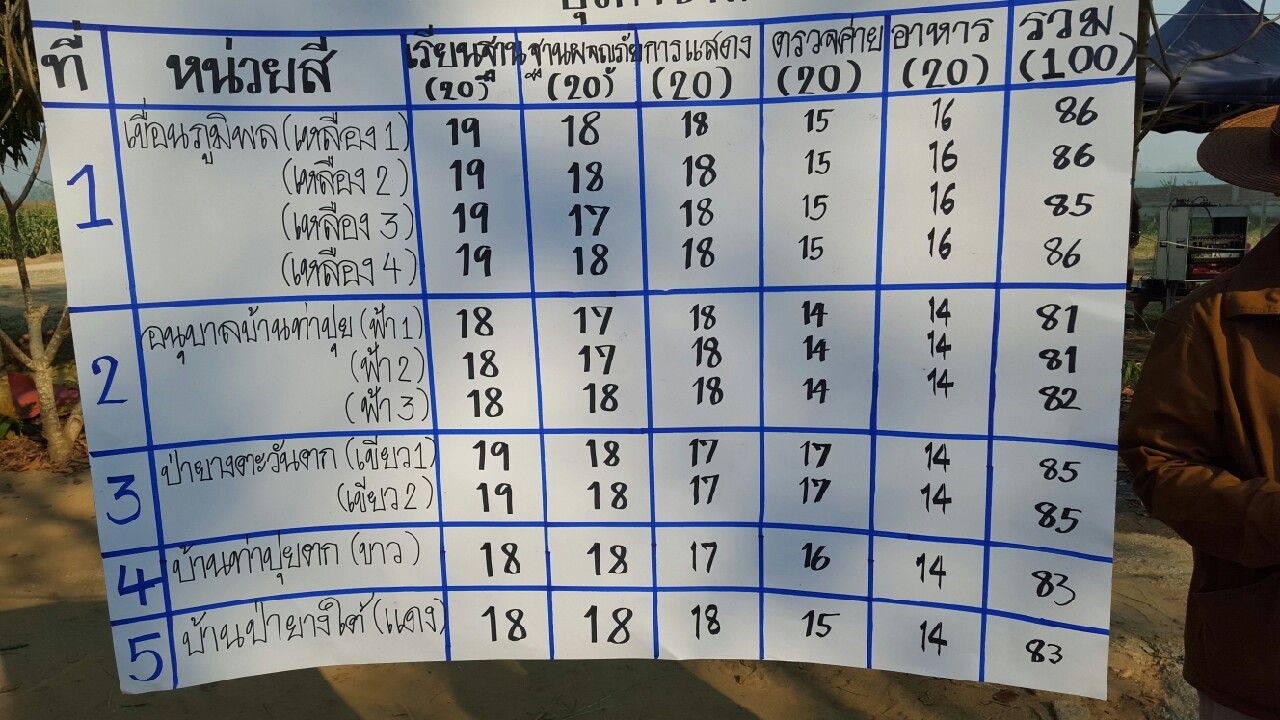 ที่ หน่วยสี เรียนฐาน (20) ฐานผจญภัย (20) การแสดง (20) ตรวจค่าย (20) อาหาร (20) รวม (100)
1 เขื่อนภูมิพล (เหลือง 1) 19 18 18 15 16 86
(เหลือง 2) 19 18 18 15 16 86
(เหลือง 3) 19 17 18 15 16 85
(เหลือง 4) 19 18 18 15 16 86
2 อนุบาลบ้านท่าปุย (ฟ้า 1) 18 17 18 14 14 81
(ฟ้า 2) 18 17 18 14 14 81
(ฟ้า 3) 18 18 18 14 14 82
3 ป่ายางตะวันตก (เขียว 1) 19 18 17 17 14 85
(เขียว 2) 19 18 17 17 14 85
4 บ้านท่าปุยตก (ขาว) 18 18 17 16 14 83
5 บ้านป่ายางใต้ (แดง) 18 18 18 15 14 83